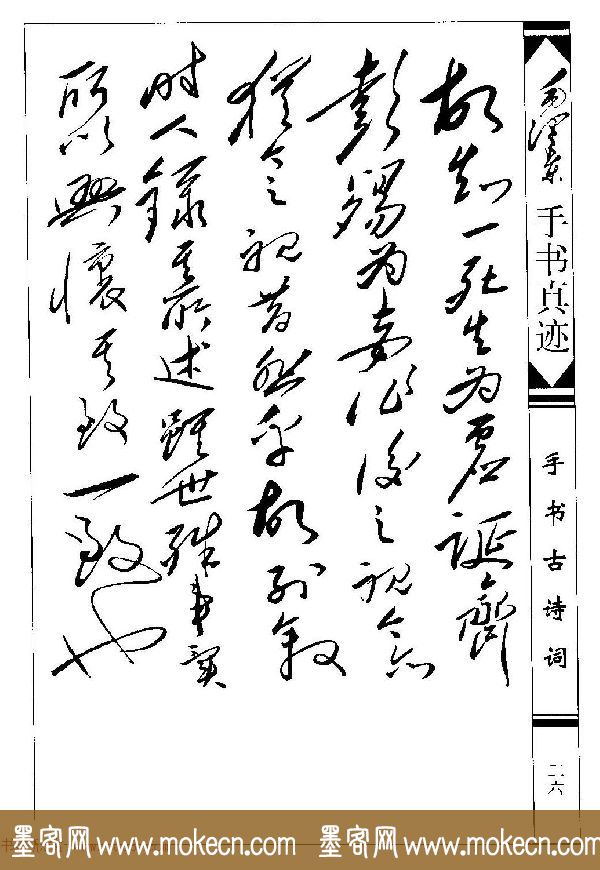 故知一死生为虚誕齊
彭殤为妄作後之視今亦
猶今之視昔悲乎故列叙
时人録其所述雖世殊事異
所以興懷其致一致也
毛泽东
手书真迹
手书古诗词
二六
墨客网 www.mokecn.com 墨客网 www.mokecn.com